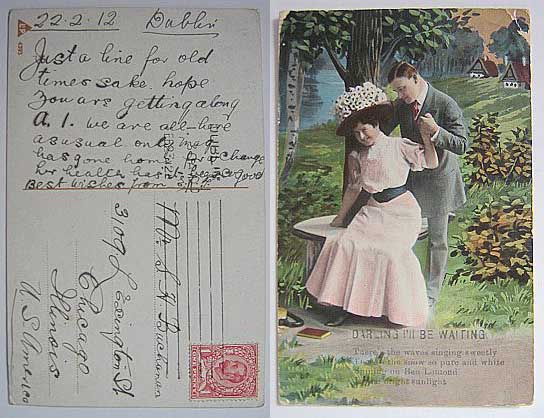 22.2.12 Dublin
Just a line for old
times sake. hope
You are getting along
A.1. we are all here
as usual only
has gone home for a change
her health has been good
Best wishes from
Mr. S. H. Buchanan
3109 Lexington St
Chicago
Illinois
U.S. America
DARLING I'll BE WAITING
There's the waves singing sweetly
the snow so pure and white
on Ben Lomond
bright sunlight